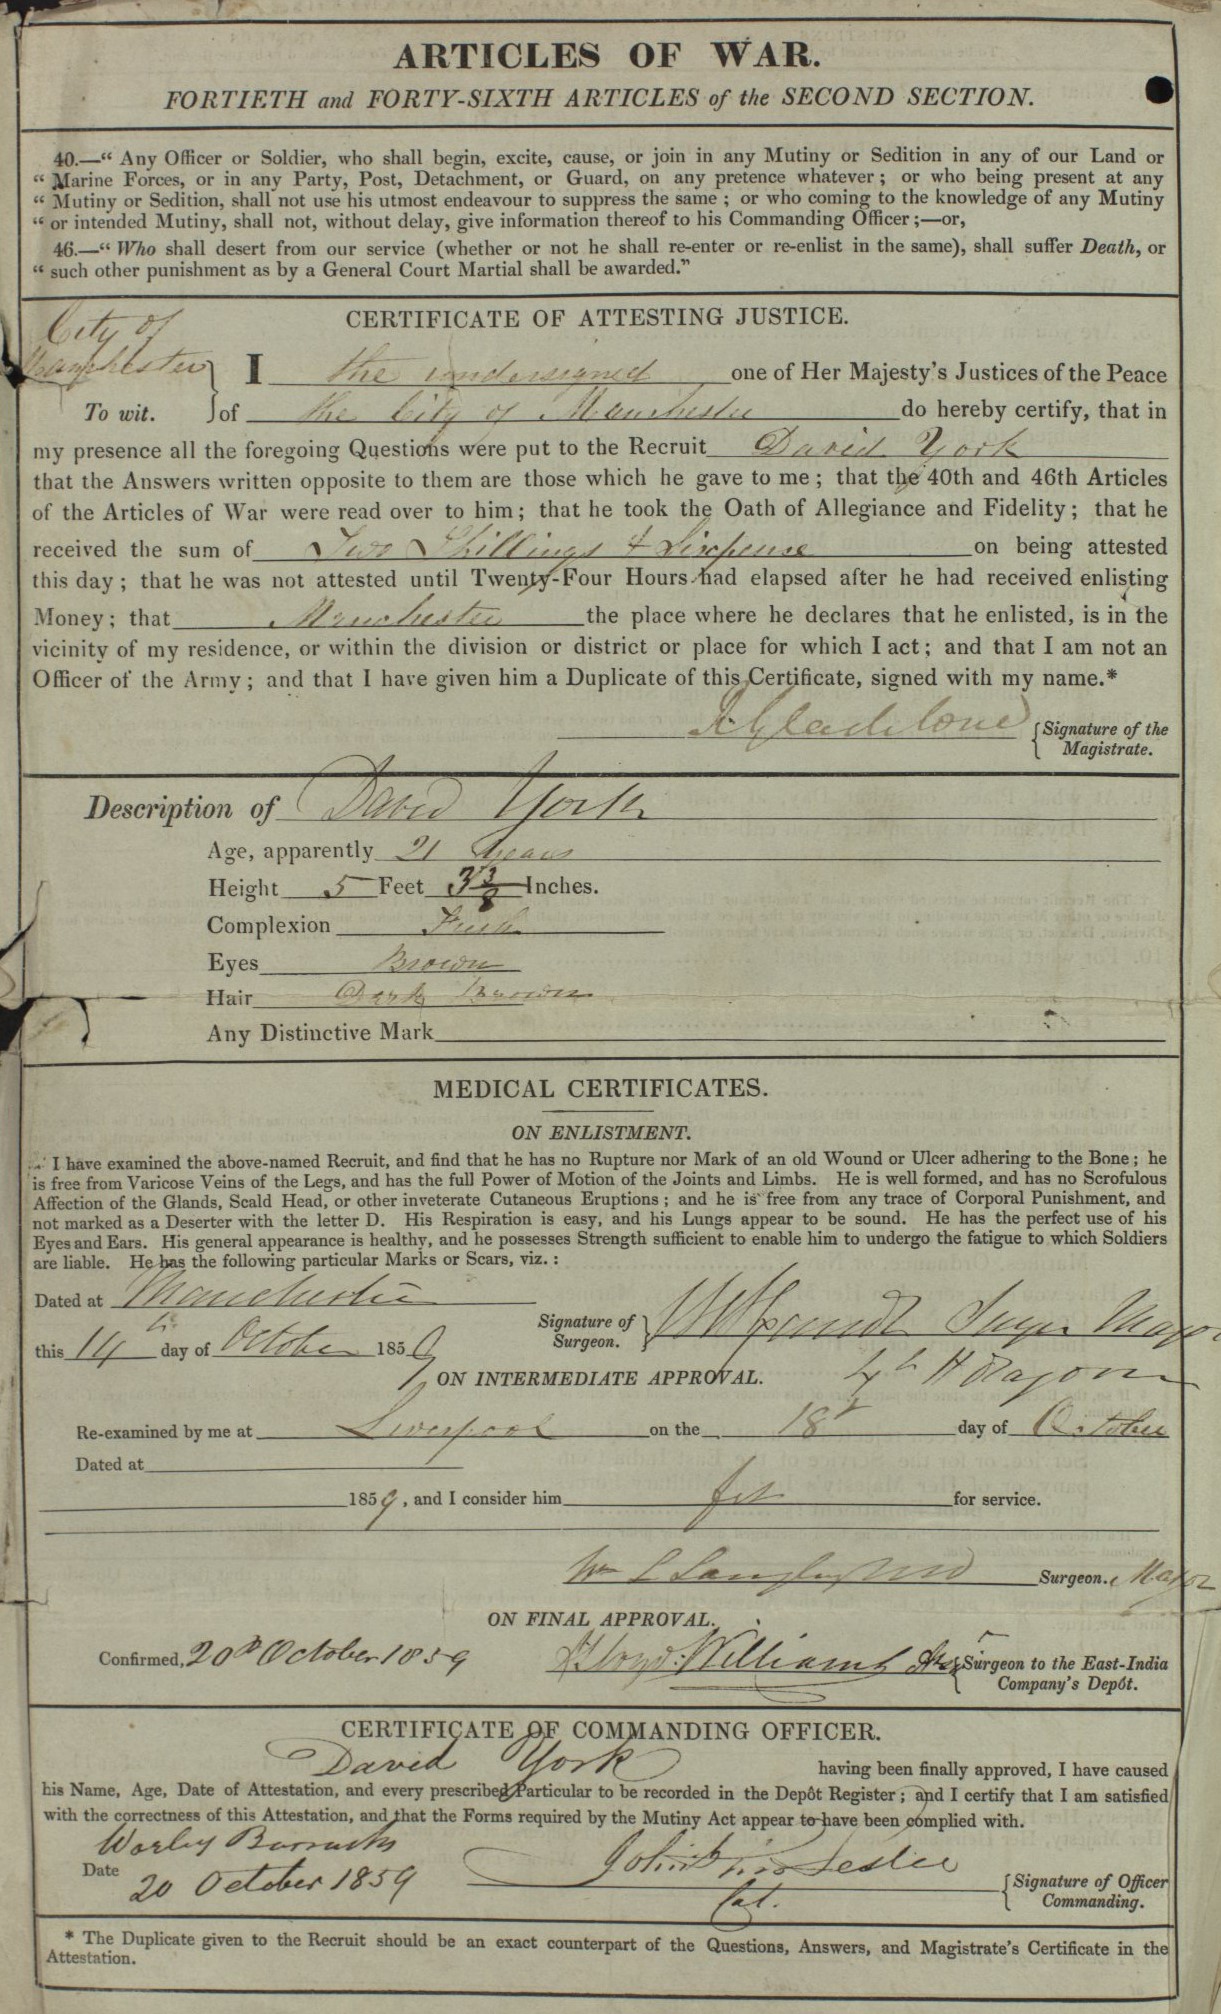 ARTICLES OF WAR.
FORTIETH and FORTY-SIXTH ARTICLES of the SECOND SECTION.
40.—“ Any Officer or Soldier, who shall begin, excite, cause, or join in any Mutiny or Sedition in any of our Land or
“ Marine Forces, or in any Party, Post, Detachment, or Guard, on any pretence whatever ; or who being present at any
“ Mutiny or Sedition, shall not use his utmost endeavour to suppress the same ; or who coming to the knowledge of any Mutiny
“ or intended Mutiny, shall not, without delay, give information thereof to his Commanding Officer ;—or,
46.—“ Who shall desert from our service (whether or not he shall re-enter or re-enlist in the same), shall suffer Death, or
“ such other punishment as by a General Court Martial shall be awarded.”
CERTIFICATE OF ATTESTING JUSTICE.
City of
Manchester
I the undersigned one of Her Majesty’s Justices of the Peace
To wit. of the City of Manchester do hereby certify, that in
my presence all the foregoing Questions were put to the Recruit David York
that the Answers written opposite to them are those which he gave to me ; that the 40th and 46th Articles
of the Articles of War were read over to him ; that he took the Oath of Allegiance and Fidelity ; that he
received the sum of Two Shillings & Sixpence on being attested
this day ; that he was not attested until Twenty-Four Hours had elapsed after he had received enlisting
Money ; that Manchester the place where he declares that he enlisted, is in the
vicinity of my residence, or within the division or district or place for which I act ; and that I am not an
Officer of the Army ; and that I have given him a Duplicate of this Certificate, signed with my name.*
Gladstone Signature of the
Magistrate.
Description of David York
Age, apparently 21 years
Height 5 Feet 3 3/8 Inches.
Complexion Fresh
Eyes Brown
Hair Dark Brown
Any Distinctive Mark
MEDICAL CERTIFICATES.
ON ENLISTMENT.
I have examined the above-named Recruit, and find that he has no Rupture nor Mark of an old Wound or Ulcer adhering to the Bone ; he
is free from Varicose Veins of the Legs, and has the full Power of Motion of the Joints and Limbs. He is well formed, and has no Scrofulous
Affection of the Glands, Scald Head, or other inveterate Cutaneous Eruptions ; and he is free from any trace of Corporal Punishment, and
not marked as a Deserter with the letter D. His Respiration is easy, and his Lungs appear to be sound. He has the perfect use of his
Eyes and Ears. His general appearance is healthy, and he possesses Strength sufficient to enable him to undergo the fatigue to which Soldiers
are liable. He has the following particular Marks or Scars, viz. :
Dated at Manchester
Signature of
Surgeon. Major
this 14th day of October 1859
ON INTERMEDIATE APPROVAL.
Re-examined by me at Liverpool on the 18th day of October
Dated at
1859, and I consider him fit for service.
Wm L Langley MD Surgeon. Major
ON FINAL APPROVAL.
Confirmed, 20th October 1859 Williams Surgeon to the East-India
Company’s Depôt.
CERTIFICATE OF COMMANDING OFFICER.
David York having been finally approved, I have caused
his Name, Age, Date of Attestation, and every prescribed Particular to be recorded in the Depôt Register ; and I certify that I am satisfied
with the correctness of this Attestation, and that the Forms required by the Mutiny Act appear to have been complied with.
Warley Barracks
Date 20 October 1859
Leslie
Col.
Signature of Officer
Commanding.
* The Duplicate given to the Recruit should be an exact counterpart of the Questions, Answers, and Magistrate’s Certificate in the
Attestation.